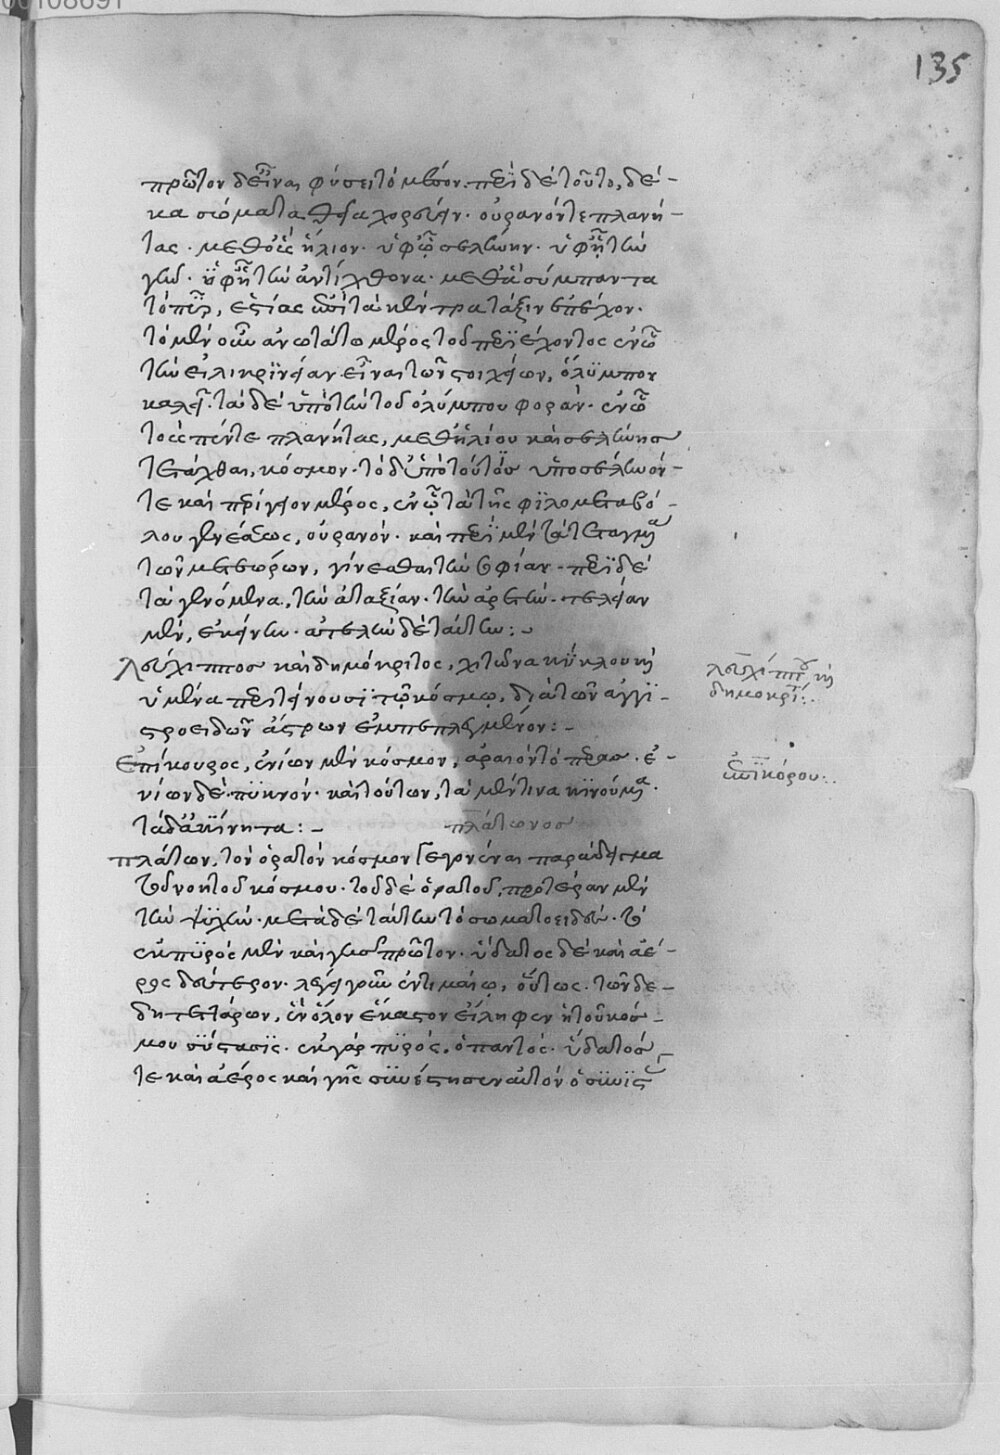 00108691
135
πρῶτον δ' εἶναι φύσει τὸ μέσον. περὶ δὲ τοῦτο, δέ-
κα σώματα θεῖα χορεύειν. οὐρανόν τε πλανή-
τας. μεθ' οὓς ἥλιον. ὑφ' ᾧ σελήνην. ὑφ' ᾗ τὴν
γῆν. ὑφ' ᾗ τὴν ἀντίχθονα. μεθ' ἃ σύμπαντα
τὸ πῦρ, ἑστίας ἐπὶ τὰ κέντρα τάξιν ἐπέχον.
τὸ μὲν οὖν ἀνωτάτω μέρος τοῦ περιέχοντος ἐν ᾧ
τὴν εἰλικρίνειαν εἶναι τῶν στοιχείων, ὄλυμπον
καλεῖ. τὰ δὲ ὑπὸ τὴν τοῦ ὀλύμπου φοράν. ἐν ᾧ
τοὺς πέντε πλανήτας, μεθ' ἡλίου καὶ σελήνης
τετάχθαι, κόσμον. τὸ δ' ὑπὸ τούτοις ὑποσέληνόν-
τε καὶ περίγειον μέρος, ἐν ᾧ τὰ τῆς φιλομεταβό-
λου γενέσεως, οὐρανόν. καὶ περὶ μὲν τὰ τεταγμένα
τῶν μετεώρων, γίνεσθαι τὴν σοφίαν. περὶ δὲ
τὰ γενόμενα, τὴν ἀταξίαν. τὴν ἀρετήν. τελείαν
μὲν, ἐκείνην. ἀτελῆ δὲ ταύτην:~
λεύκιππος καὶ δημόκριτος, χιτῶνα κύκλου καὶ
ὑμένα περιτείνουσι τῷ κόσμῳ, διὰ τῶν ἀγκι-
στροειδῶν ἄστρων ἐμπεπλεγμένον:-
λευκίππου καὶ
δημοκρί:.
ἐπίκουρος, ἐνίων μὲν κόσμον, ἀραιόν τὸ πέρας. ἐ-
νίων δὲ. πυκνόν. καὶ τούτων, τὰ μέν τινα κινούμενα.
τὰ δ' ἀκίνητα:-
ἐπικούρου:.
πλάτωνος
πλάτων, τὸν ὁρατὸν κόσμον γεγονέναι παράδειγμα
τοῦ νοητοῦ κόσμου. τοῦ δὲ ὁρατοῦ, προτέραν μὲν
τὴν ψυχήν. μετὰ δὲ ταύτην τὸ σωματοειδές. τὸ
ἐκ πυρὸς μὲν καὶ γῆς πρῶτον. ὕδατος δὲ καὶ ἀέ-
ρος δεύτερον. λέγει γοῦν ἐν τιμαίῳ, οὕτως. τῶν δε-
δὴ τεττάρων, ἓν ὅλον ἕκαστον εἴληφεν ἡ τοῦ κόσ-
μου σύστασις. ἐκ γὰρ πυρός, ὁ παντός. ὕδατός
τε καὶ ἀέρος καὶ γῆς συνέστησεν αὐτὸν ὁ συνισ